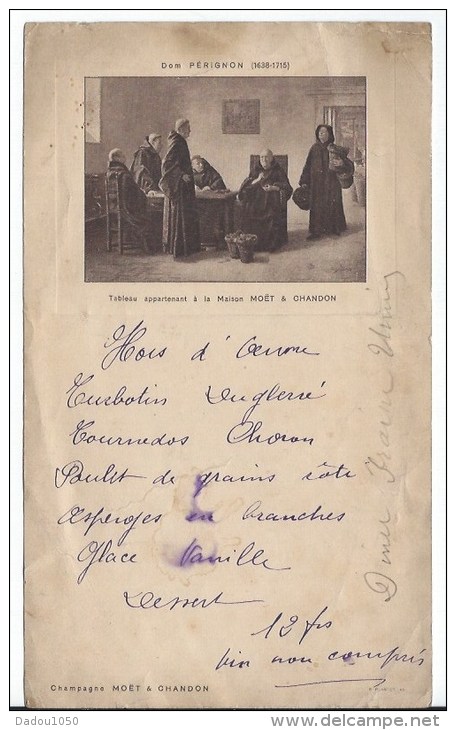 Dom PÉRIGNON (1638-1715)
Tableau appartenant à la Maison MOËT & CHANDON
Hors d'Œuvre
Turbotin Duglerré
Tournedos Choron
Poulet de grains rôti
Asperges en branches
Glace Vanille
Dessert
12 frs
vin non compris
Diner
Champagne MOËT & CHANDON
Dadou1050
www.delcampe.net